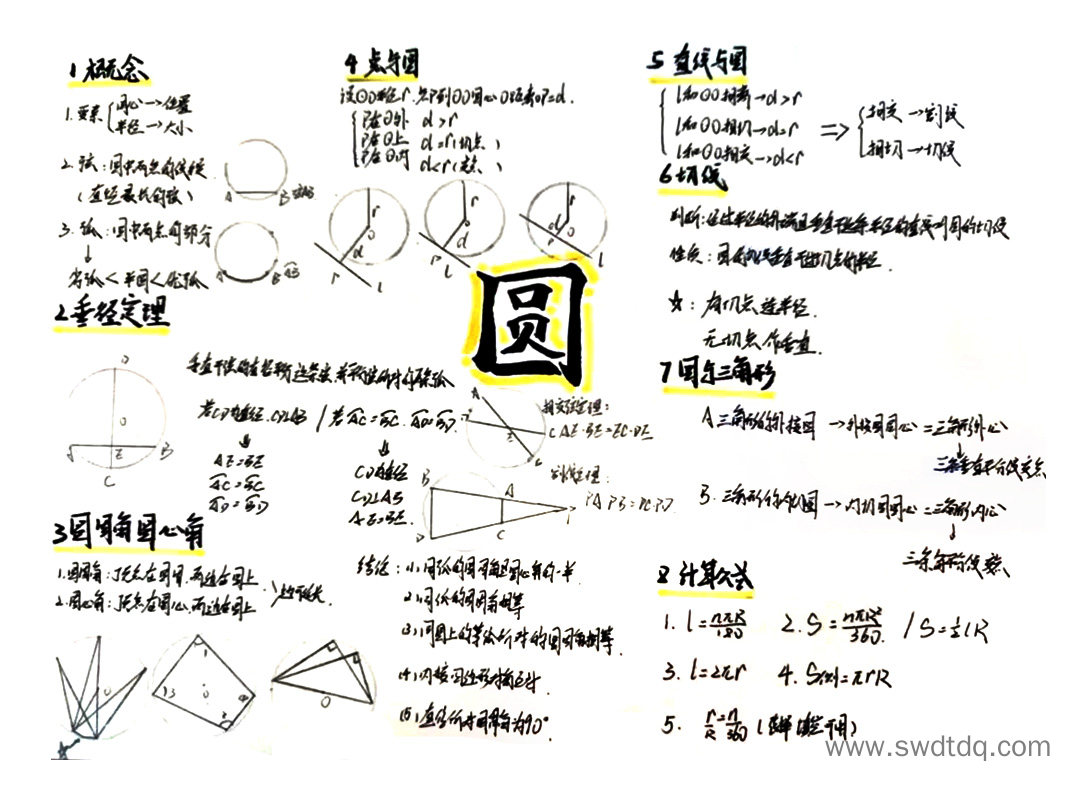 圆
1 概念
1. 要素
圆心→位置
半径→大小
2. 弦：圆中两点的线段
（直径最长的弦）
A B
3. 弧：圆中两点的部分
劣弧<半圆<优弧
A B
2 垂径定理
若CD为直径. CD⊥AB
AE=BE
AC=BC
AD=BD
若AC=BC. AD=BD.
CD为直径
CD⊥AB
AE=BE.
O
E B
C
3 圆周角圆心角
1. 圆周角：顶点在圆周，两边在圆上
2. 圆心角：顶点在圆心，两边在圆上
4 点与圆
设⊙O半径r. 点P到⊙O圆心O距离OP=d.
P在⊙外 d>r
P在⊙上 d=r
P在⊙内 d<r
r O d P l
r O d P l
r O d P l
相交弦定理：
AE·BE=EC·DE
割线定理：
PA·PB=PC·PD
A
E
B A
D C
结论：(1) 同弧的圆周角是圆心角的一半.
(2) 同弧的圆周角相等
(3) 同圆上的等弧所对的圆周角相等.
(4) 内接四边形对角互补.
(5) 直径所对圆周角为90°
5 直线与圆
l和⊙O相离→d>r
l和⊙O相切→d=r
l和⊙O相交→d<r
=>
相交→割线
相切→切线
6 切线
判断：经过半径的外端且垂直于这条半径的直线叫圆的切线
性质：圆的切线垂直于过切点的半径.
☆：有切点连半径.
无切点作垂直.
7 圆与三角形
A 三角形的外接圆→外接圆圆心=三角形外心
三条垂直平分线交点
B. 三角形的内切圆→内切圆圆心=三角形内心
三条角平分线交点
8 计算公式
1. l=nπR/180 2. S=nπR²/360. / S=½lR
3. l=2πr 4. S侧=πrR
5. r/R=n/360
www.swdtdq.com